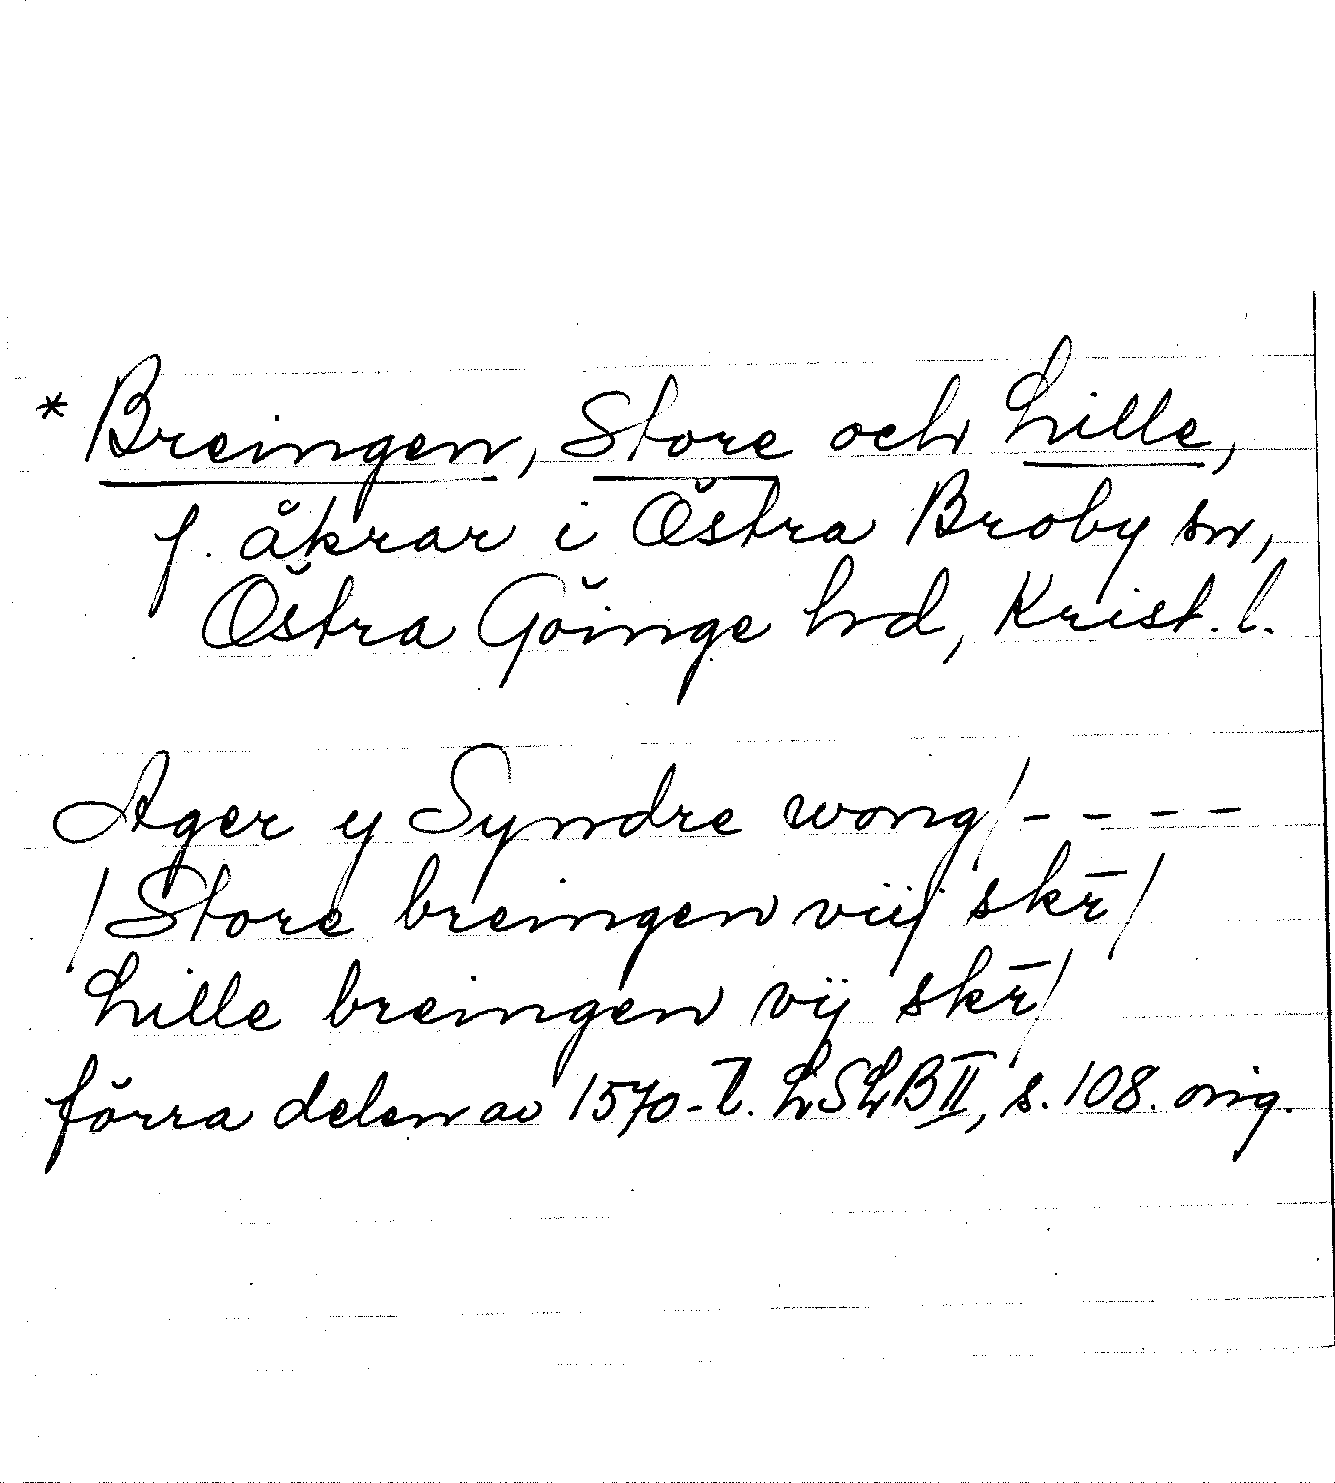 * Breingen, Store och Lille,
f. åkrar i Östra Broby sn,
Östra Göinge hd, Krist. l.
Ager y Syndre wong/ - - - -
/ Store breingen viij skr̄ /
Lille breingen vij skr̄ /
förra delen av 1570-t. LSLB II, s. 108. orig.